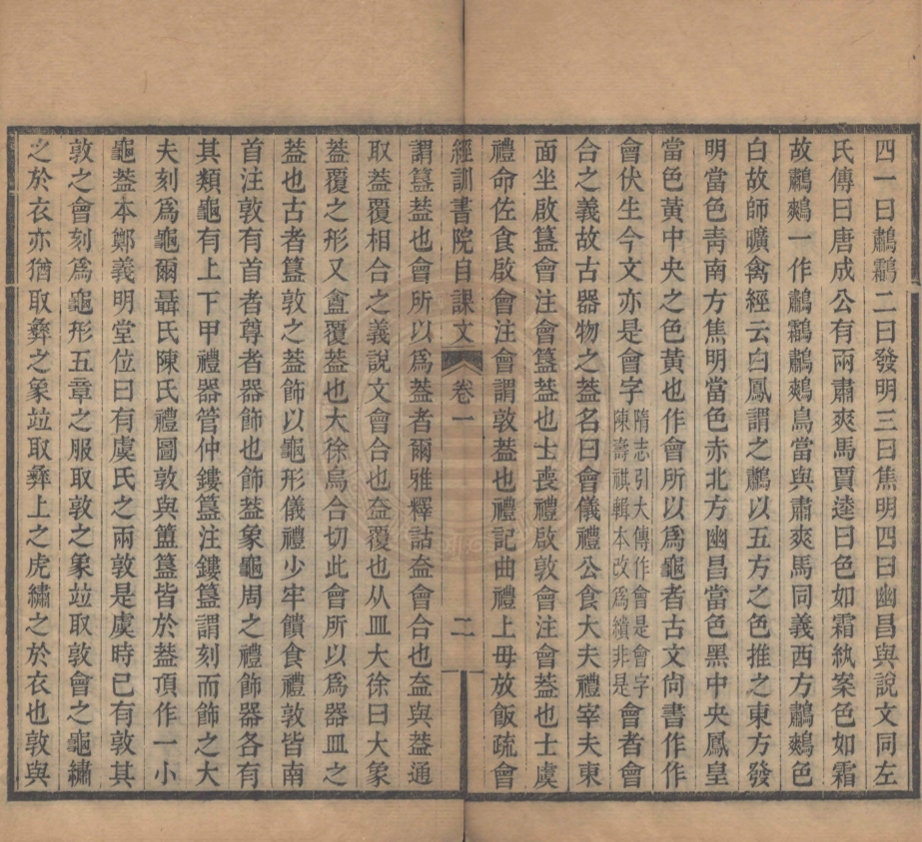 四一曰鷫鸘二曰發明三曰焦明四曰幽昌與說文同左
氏傳曰唐成公有兩肅爽馬賈逵曰色如霜紈案色如霜
故鷫鷞一作鷫鸘鷫鷞鳥當與肅爽馬同義西方鷫鷞色
白故師曠禽經云白鳳謂之鷫以五方之色推之東方發
明當色靑南方焦明當色赤北方幽昌當色黑中央鳳皇
當色黃中央之色黃也作會所以爲龜者古文尙書作作
會伏生今文亦是會字隋志引大傳作會是會字陳壽祺輯本改爲繢非是會者會
合之義故古器物之葢名曰會儀禮公食大夫禮宰夫東
面坐啟簋會注會簋葢也士喪禮啟敦會注會葢也士虞
禮命佐食啟會注會謂敦葢也禮記曲禮上毋放飯疏會
經訓書院自課文 卷一 二
謂簋葢也會所以爲葢者爾雅釋詁盇會合也盇與葢通
取葢覆相合之義說文會合也盇覆也从皿大徐曰大象
葢覆之形又盦覆葢也大徐烏合切此會所以爲器皿之
葢也古者簋敦之葢飾以龜形儀禮少牢饋食禮敦皆南
首注敦有首者尊者器飾也飾葢象龜周之禮飾器各有
其類龜有上下甲禮器管仲鏤簋注鏤簋謂刻而飾之大
夫刻爲龜爾聶氏陳氏禮圖敦與簠簋皆於葢頂作一小
龜葢本鄭義明堂位曰有虞氏之兩敦是虞時已有敦其
敦之會刻爲龜形五章之服取敦之象竝取敦會之龜繡
之於衣亦猶取彝之象竝取彝上之虎繡之於衣也敦與